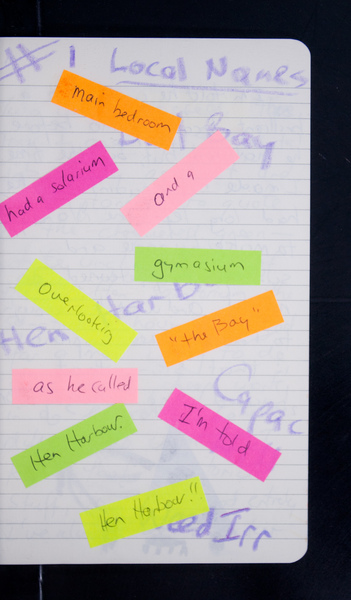 # 1 Local Names
main bedroom
Bay
had a solarium
and a
gymasium
Overlooking
"the Bay"
Hen Harb
as he called
Capac
I'm told
Hen Harbour.
Hen Harbour!!
ed Irr